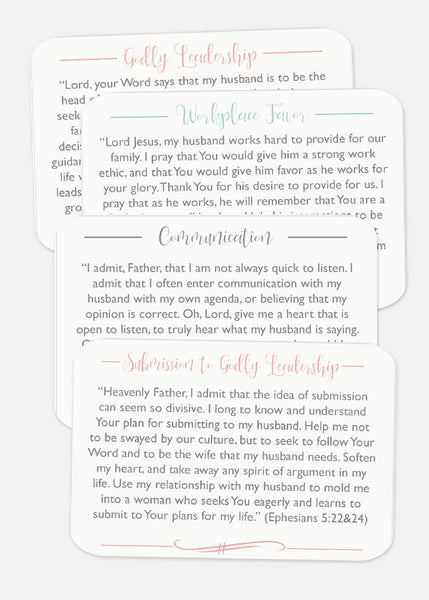 Godly Leadership
“Lord, your Word says that my husband is to be the
head of
seek
fa
decis
guidan
life v
leads
gro
Workplace Favor
“Lord Jesus, my husband works hard to provide for our
family. I pray that You would give him a strong work
ethic, and that You would give him favor as he works for
your glory. Thank You for his desire to provide for us. I
pray that as he works, he will remember that You are a
to be
m
Communication
“I admit, Father, that I am not always quick to listen. I
admit that I often enter communication with my
husband with my own agenda, or believing that my
opinion is correct. Oh, Lord, give me a heart that is
open to listen, to truly hear what my husband is saying.
Submission to Godly Leadership
“Heavenly Father, I admit that the idea of submission
can seem so divisive. I long to know and understand
Your plan for submitting to my husband. Help me not
to be swayed by our culture, but to seek to follow Your
Word and to be the wife that my husband needs. Soften
my heart, and take away any spirit of argument in my
life. Use my relationship with my husband to mold me
into a woman who seeks You eagerly and learns to
submit to Your plans for my life.” (Ephesians 5:22&24)